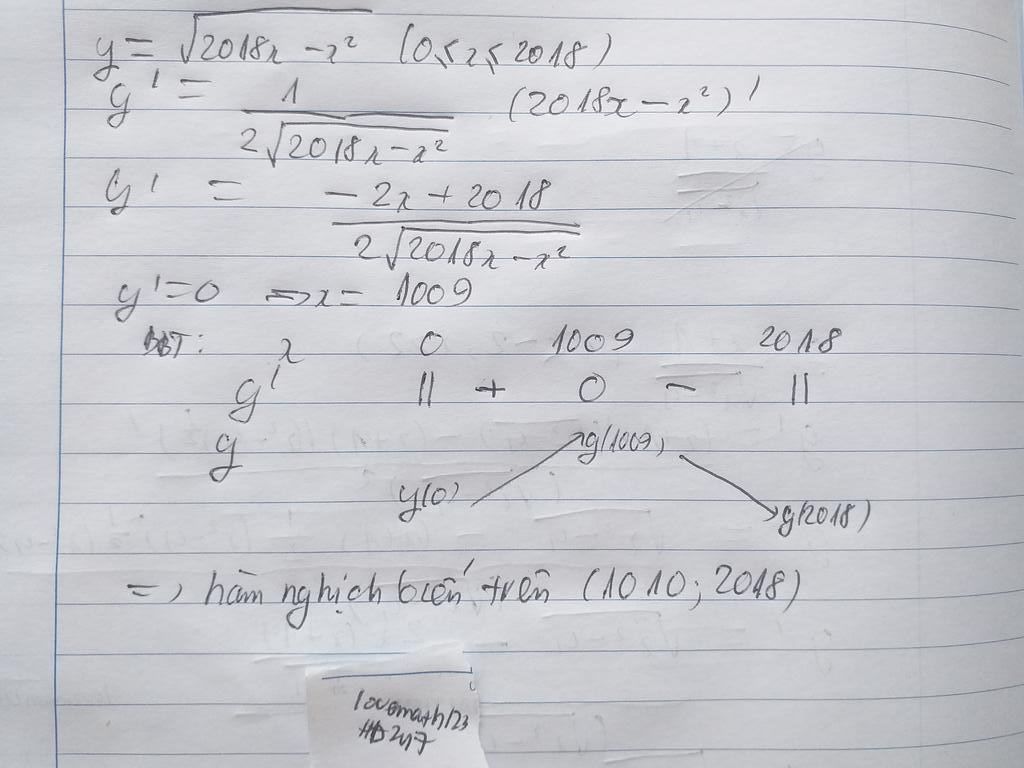 y = √(2018x - x²) (0 ≤ x ≤ 2018)
y' = 1 / (2√(2018x - x²)) (2018x - x²)'
y' = (-2x + 2018) / (2√(2018x - x²))
y' = 0 => x = 1009
BBT: x 0 1009 2018
y' || + 0 - ||
y y(0) ↗ y(1009) ↘ y(2018)
=> hàm nghịch biến trên (1010; 2018)
lovemath123
HD247